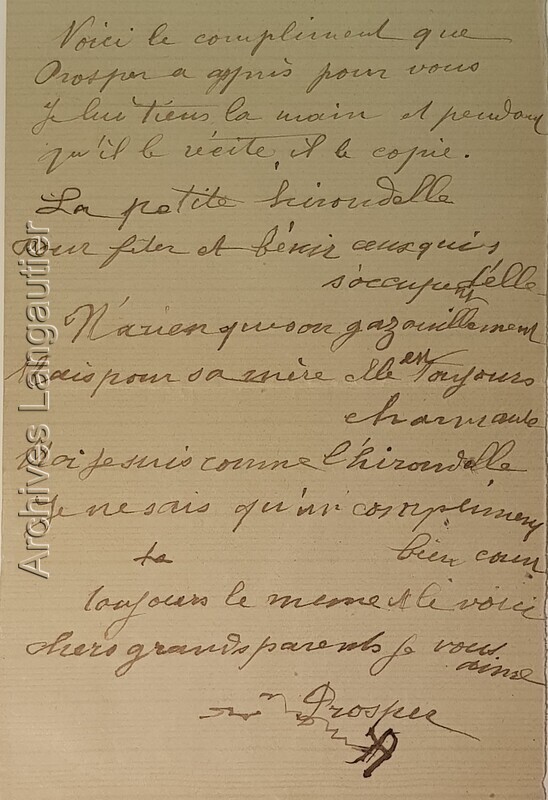 Voici le compliment que
Prosper a appris pour vous
Je lui tiens la main et pendant
qu'il le récite, il le copie.
La petite hirondelle
Pour fêter et bénir ceux qui s
s'occupent d'elle
N'a rien que son gazouillement
Mais pour sa mère elle est toujours
charmante
Moi je suis comme l'hirondelle
Je ne sais qu'un compliment
bien court
toujours le meme et le voici
chers grands parents je vous
aime
Prosper
Archives Langautier